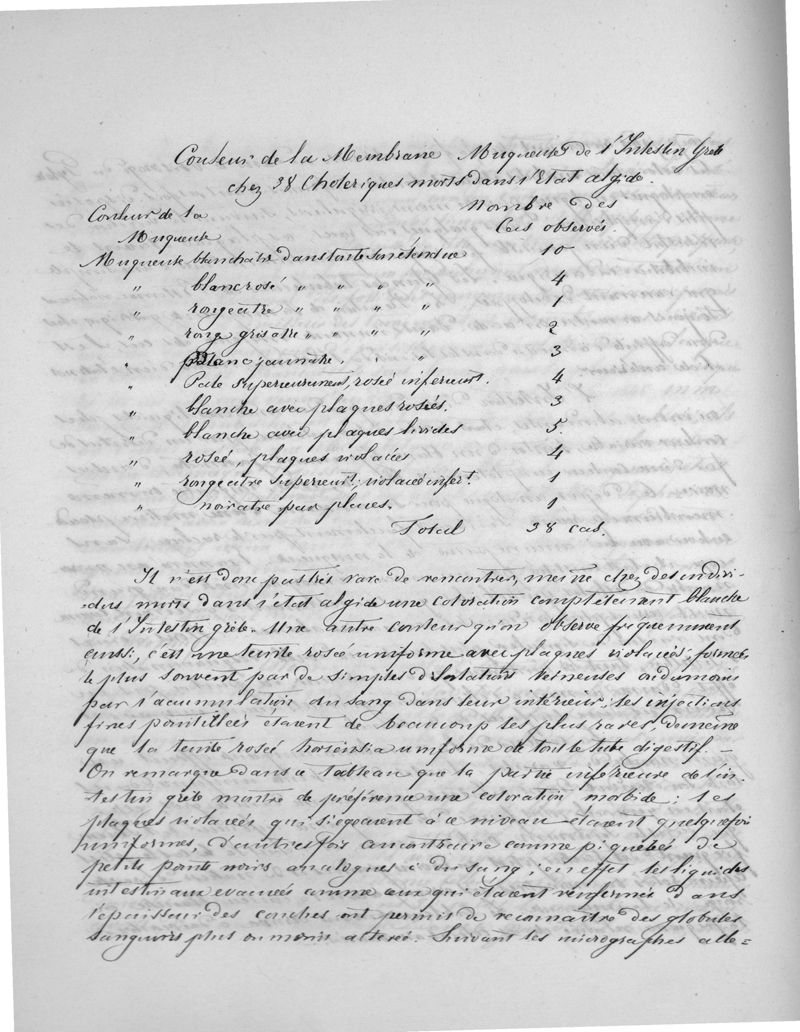 Couleur de la Membrane Muqueuse de l'Intestin Grêle
chez 38 Choleriques morts dans l'Etat algide.
Couleur de la Muqueuse
Nombre des Cas observés.
Muqueuse blanchatre dans toute son étendue 10
" blanc rosé " " " " 4
" rougeatre " " " " 1
" rouge grisatre " " " " 2
" blanc jaunatre . . " 3
" Pale superieurement, rosée inférieurt. 4
" blanche avec plaques rosées. 3
" blanche avec plaques livides 5
" rosée, plaques violacées 4
" rougeatre superieurt; violacé infert. 1
" noiratre par places. 1
Total 38 cas.
Il n'est donc pas très rare de rencontrer, meme chez des indivi-
-dus morts dans l'état algide une coloration complètement blanche
de l'Intestin grêle. Une autre couleur qu'on observe frequemment
aussi, c'est une teinte rosée uniforme avec plaques violacées, formées
le plus souvent par de simples dilatations veineuses ou du moins
par l'accumulation du sang dans leur intérieur; les injections
fines pointillées étaient de beaucoup les plus rares, de meme
que la teinte rosée hortensia uniforme de tout le tube digestif. —
On remarque dans ce tableau que la partie inférieure de l'in-
testin grêle montre de préférence une coloration morbide: les
plaques violacées qui siegeaient à ce niveau étaient quelquefois
uniformes, d'autres fois au contraire comme piquetées de
petits points noirs analogues à du sang; en effet les liquides
intestinaux evacués comme ceux qui étaient renfermés dans
l'épaisseur des couches ont permis de reconnaitre des globules
sanguins plus ou moins alterés. Suivant les micrographes alle=